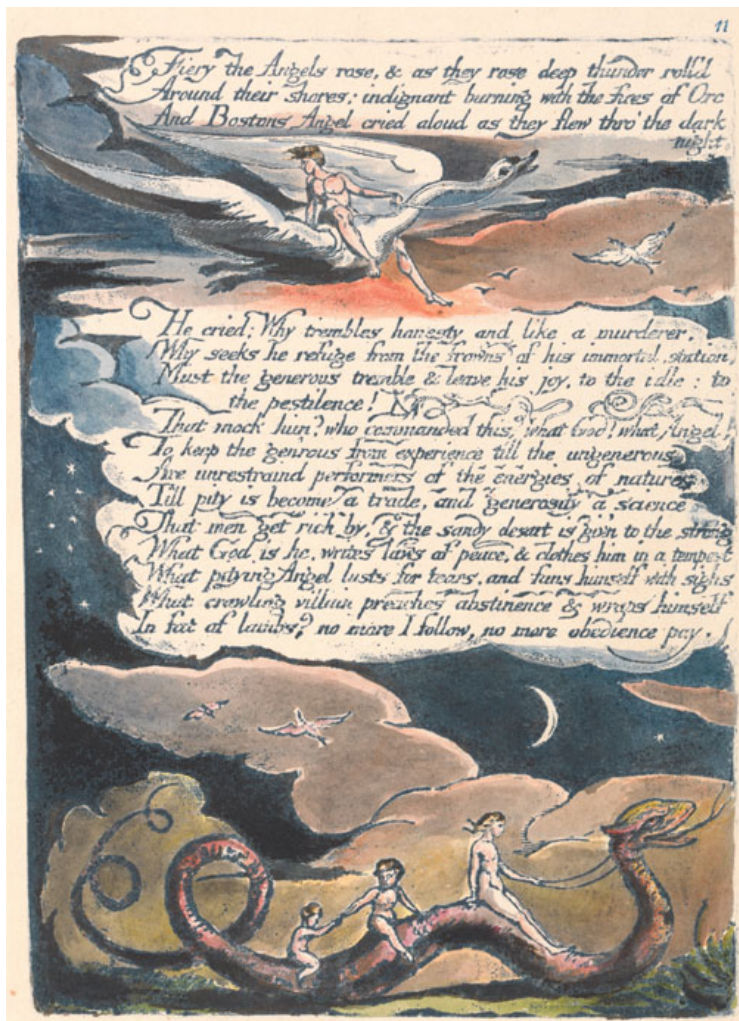 11
Fiery the Angels rose, & as they rose deep thunder roll'd
Around their shores: indignant burning with the fires of Orc
And Bostons Angel cried aloud as they flew thro' the dark
night.
He cried: Why trembles honesty and like a murderer,
Why seeks he refuge from the frowns of his immortal station!
Must the generous tremble & leave his joy, to the idle: to
the pestilence!
That mock him? who commanded this? what God? what Angel!
To keep the gen'rous from experience till the ungenerous
Are unrestraind performers of the energies of nature;
Till pity is become a trade, and generosity a science
That men get rich by, & the sandy desart is giv'n to the strong
What God is he, writes laws of peace, & clothes him in a tempest
What pitying Angel lusts for tears, and fans himself with sighs
What crawling villain preaches abstinence & wraps himself
In fat of lambs? no more I follow, no more obedience pay.